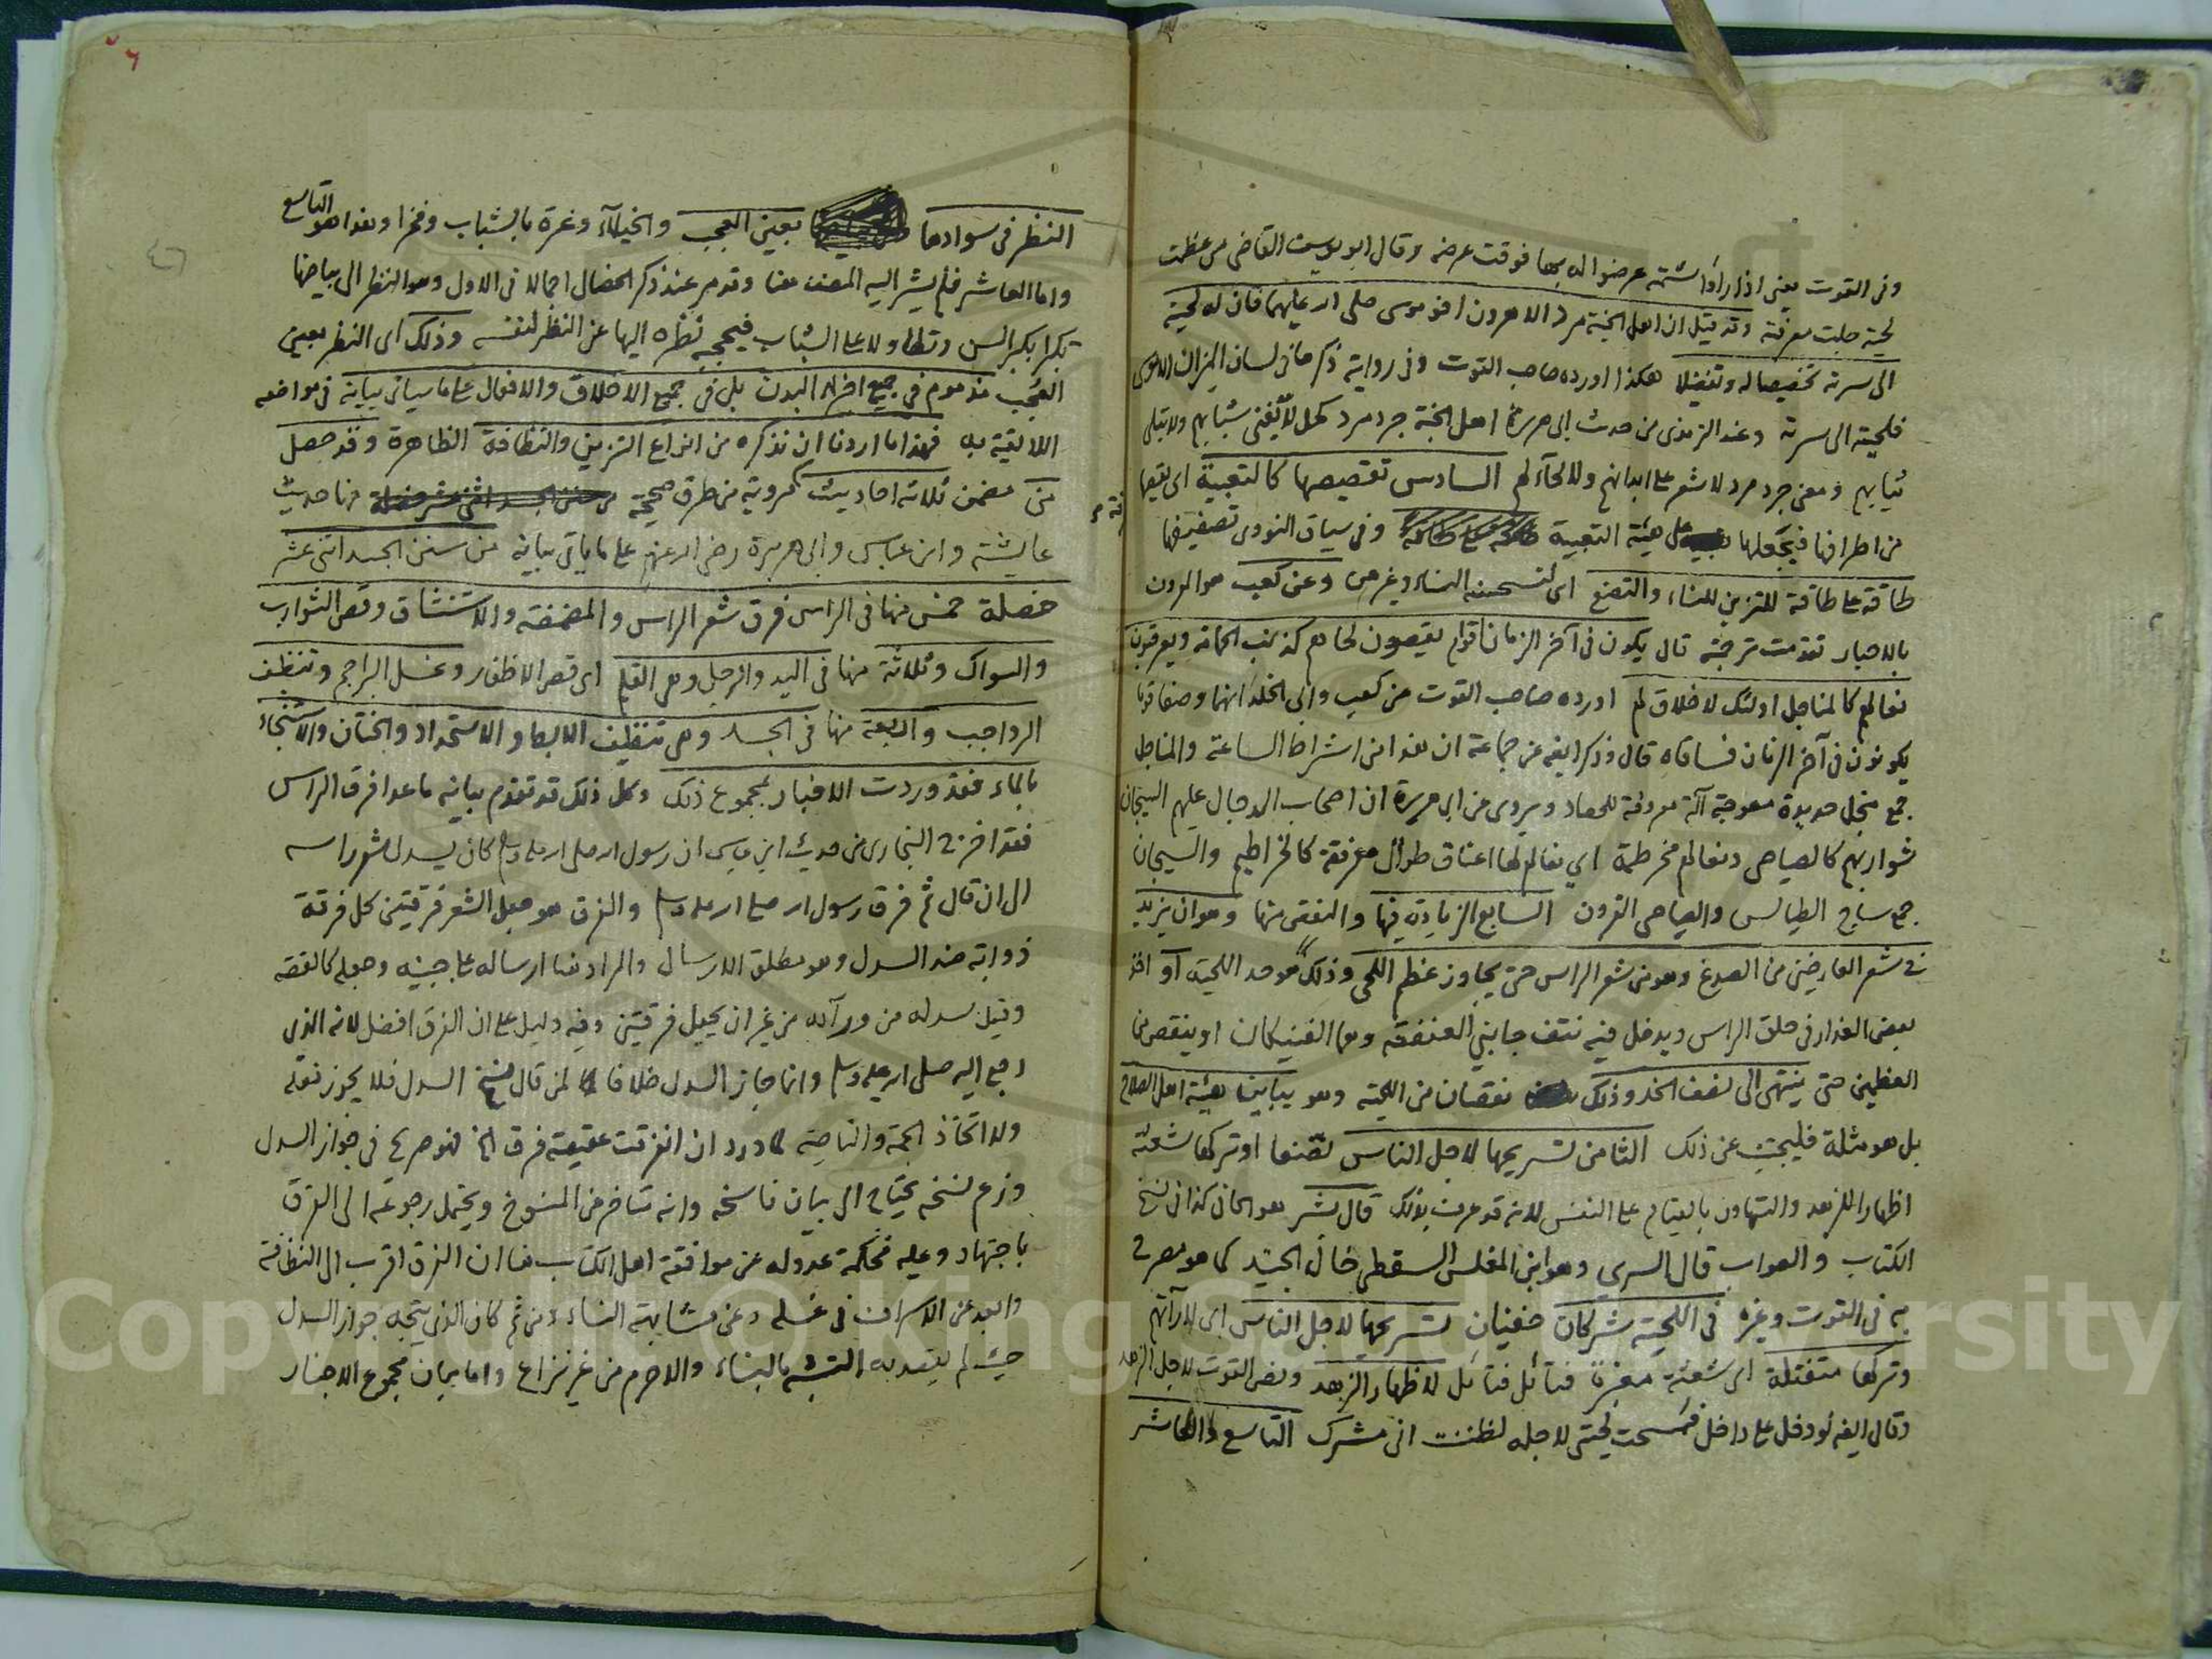 وفى القوت يعنى اذا راوا شتمه عرضوا له بها فوقت عرضه وقال ابو يوسف القاضى من عظمت
لحيته جلت معرفته وقد قيل ان اهل الجنة مرد الا هرون اخو موسى صلى الله عليهما فان له لحية
الى سرته تخصيصا له وتفضيلا هكذا اورده صاحب القوت وفى رواية ذكرها فى لسان الميزان الا موسى
فلحيته الى سرته وعند الترمذى من حديث ابى هريرة اهل الجنة جرد مرد كحل لا يفنى شبابهم ولا تبلى
ثيابهم ومعنى جرد مرد لا شعر على ابدانهم ولا لحآء لهم السادس تقصيصها كالتعبية اى يقصها
من اطرافها فيجعلها على هيئة التعبية وفى سياق النووى تصفيفها
طاقة على طاقة للتزين للنساء والتصنع اى لتستحسنه النساء وغيرهن وعن كعب هو المعروف
بالاحبار تقدمت ترجمته قال يكون فى آخر الزمان اقوام يقصون لحاهم كذنب الحمامة ويعرقبون
نعالهم كالمناجل اولئك لا خلاق لهم اورده صاحب القوت من كعب وابى الجلد انهما وصفا قوما
يكونون فى آخر الزمان فساقاه قال وذكر ايضه عن جماعة ان هذا من اشراط الساعة والمناجل
جمع منجل حديدة معوجة آلة معروفة للحصاد ويروى عن ابى هريرة ان اصحاب الدجال عليهم السيجان
شواربهم كالصياصى ونعالهم مخرطمة اى نعالهم لها اعناق طوال معرقفة كالخراطيم والسيجان
جمع ساج الطيالس والصياصى القرون السابع الزيادة فيها والنقص منها وهو ان يزيد
فى شعر العارضين من الصدغ وهو من شعر الراس حتى يجاوز عظم اللحى وذلك هو حد اللحية او اخذ
بعض العذار فى حلق الراس ويدخل فيه نتف جانبى العنفقة وهما الفنيكان او ينقص من
العظمين حتى ينتهى الى نصف الخد وذلك نقصان من اللحية وهو يباين هيئة اهل الصلاح
بل هو مثلة فليجتنب عن ذلك الثامن تسريحها لاجل الناس تصنعا او تركها شعثة
اظهارا للزهد والتهاون بالقيام على النفس لانه قد عرف بذلك قال بشر هو الحافى كذا فى نسخ
الكتاب والصواب قال السرى وهو ابن المغلس السقطى خال الجنيد كما هو مصرح
به فى القوت وغيره فى اللحية شركان خفيان تسريحها لاجل الناس اى لارآءتهم
وتركها متفتلة اى شعثة مفرقة فتائل فتائل لاظهار الزهد ونص القوت لاجل الزهد
وقال ايضه لو دخل على داخل فمسحت لحيتى لاجله لظننت انى مشرك التاسع والعاشر
النظر فى سوادها بعين العجب والخيلآء وغرة بالشباب وفخرا وهذا هو التاسع
واما العاشر فلم يشر اليه المصنف هنا وقد مر عند ذكر الخصال اجمالا فى الاول وهو النظر الى بياضها
تكبرا بكبر السن وتطاولا على الشباب فيحجبه نظره اليها عن النظر لنفسه وذلك اى النظر بعين
العجب مذموم فى جميع اجزاء البدن بل فى جميع الاخلاق والافعال على ما سياتى بيانه فى مواضعه
اللائقة به فهذا ما اردنا ان نذكره من انواع التزين والنظافة الظاهرة وقد حصل
من مضمن ثلاثة احاديث مروية من طرق صحيحة منها حديث
عايشة وابن عباس وابى هريرة رضى الله عنهم على ما ياتى بيانه من سنن الجسد اثنى عشر
خصلة خمس منها فى الراس فرق شعر الراس والمضمضة والاستنشاق وقص الشوارب
والسواك وثلاثة منها فى اليد والرجل وهى القلم اى قص الاظفار وغسل البراجم وتنظيف
الرواجب واربعة منها فى الجسد وهى تنظيف الابط والاستحداد والختان والاستنجاء
بالماء فقد وردت الاخبار بمجموع ذلك وكل ذلك قد تقدم بيانه ما عدا فرق الراس
فقد اخرج البخارى من حديث ابن عباس ان رسول الله صلى الله عليه وسلم كان يسدل شعر راسه
الى ان قال ثم فرق رسول الله صلى الله عليه وسلم والفرق هو جعل الشعر فرقتين كل فرقة
ذوابة ضد السدل وهو مطلق الارسال والمراد هنا ارساله على جبينه وجعله كالقصة
وقيل سدله من ورآئه من غير ان يجعل فرقتين وفيه دليل على ان الفرق افضل لانه الذى
رجع اليه صلى الله عليه وسلم وانما جاز السدل خلافا لمن قال نسخ السدل فلا يجوز فعله
ولا اتخاذ الجمة والناصية لما ورد ان انفرقت عقيقته فرق الخ فهو صريح فى جواز السدل
وزعم نسخه يحتاج الى بيان ناسخه وانه تتاخر من المنسوخ ويحتمل رجوعه الى الفرق
باجتهاد وعليه فحكمة عدوله عن موافقة اهل الكتاب هنا ان الفرق اقرب الى النظافة
وابعد عن الاسراف فى غسله وعن مشابهة النساء ومن ثم كان الذى يتجه جواز السدل
حيث لم يقصد به التشبه بالنساء والا حرم من غير نزاع واما بيان مجموع الاخبار
Copyright © King Saud University